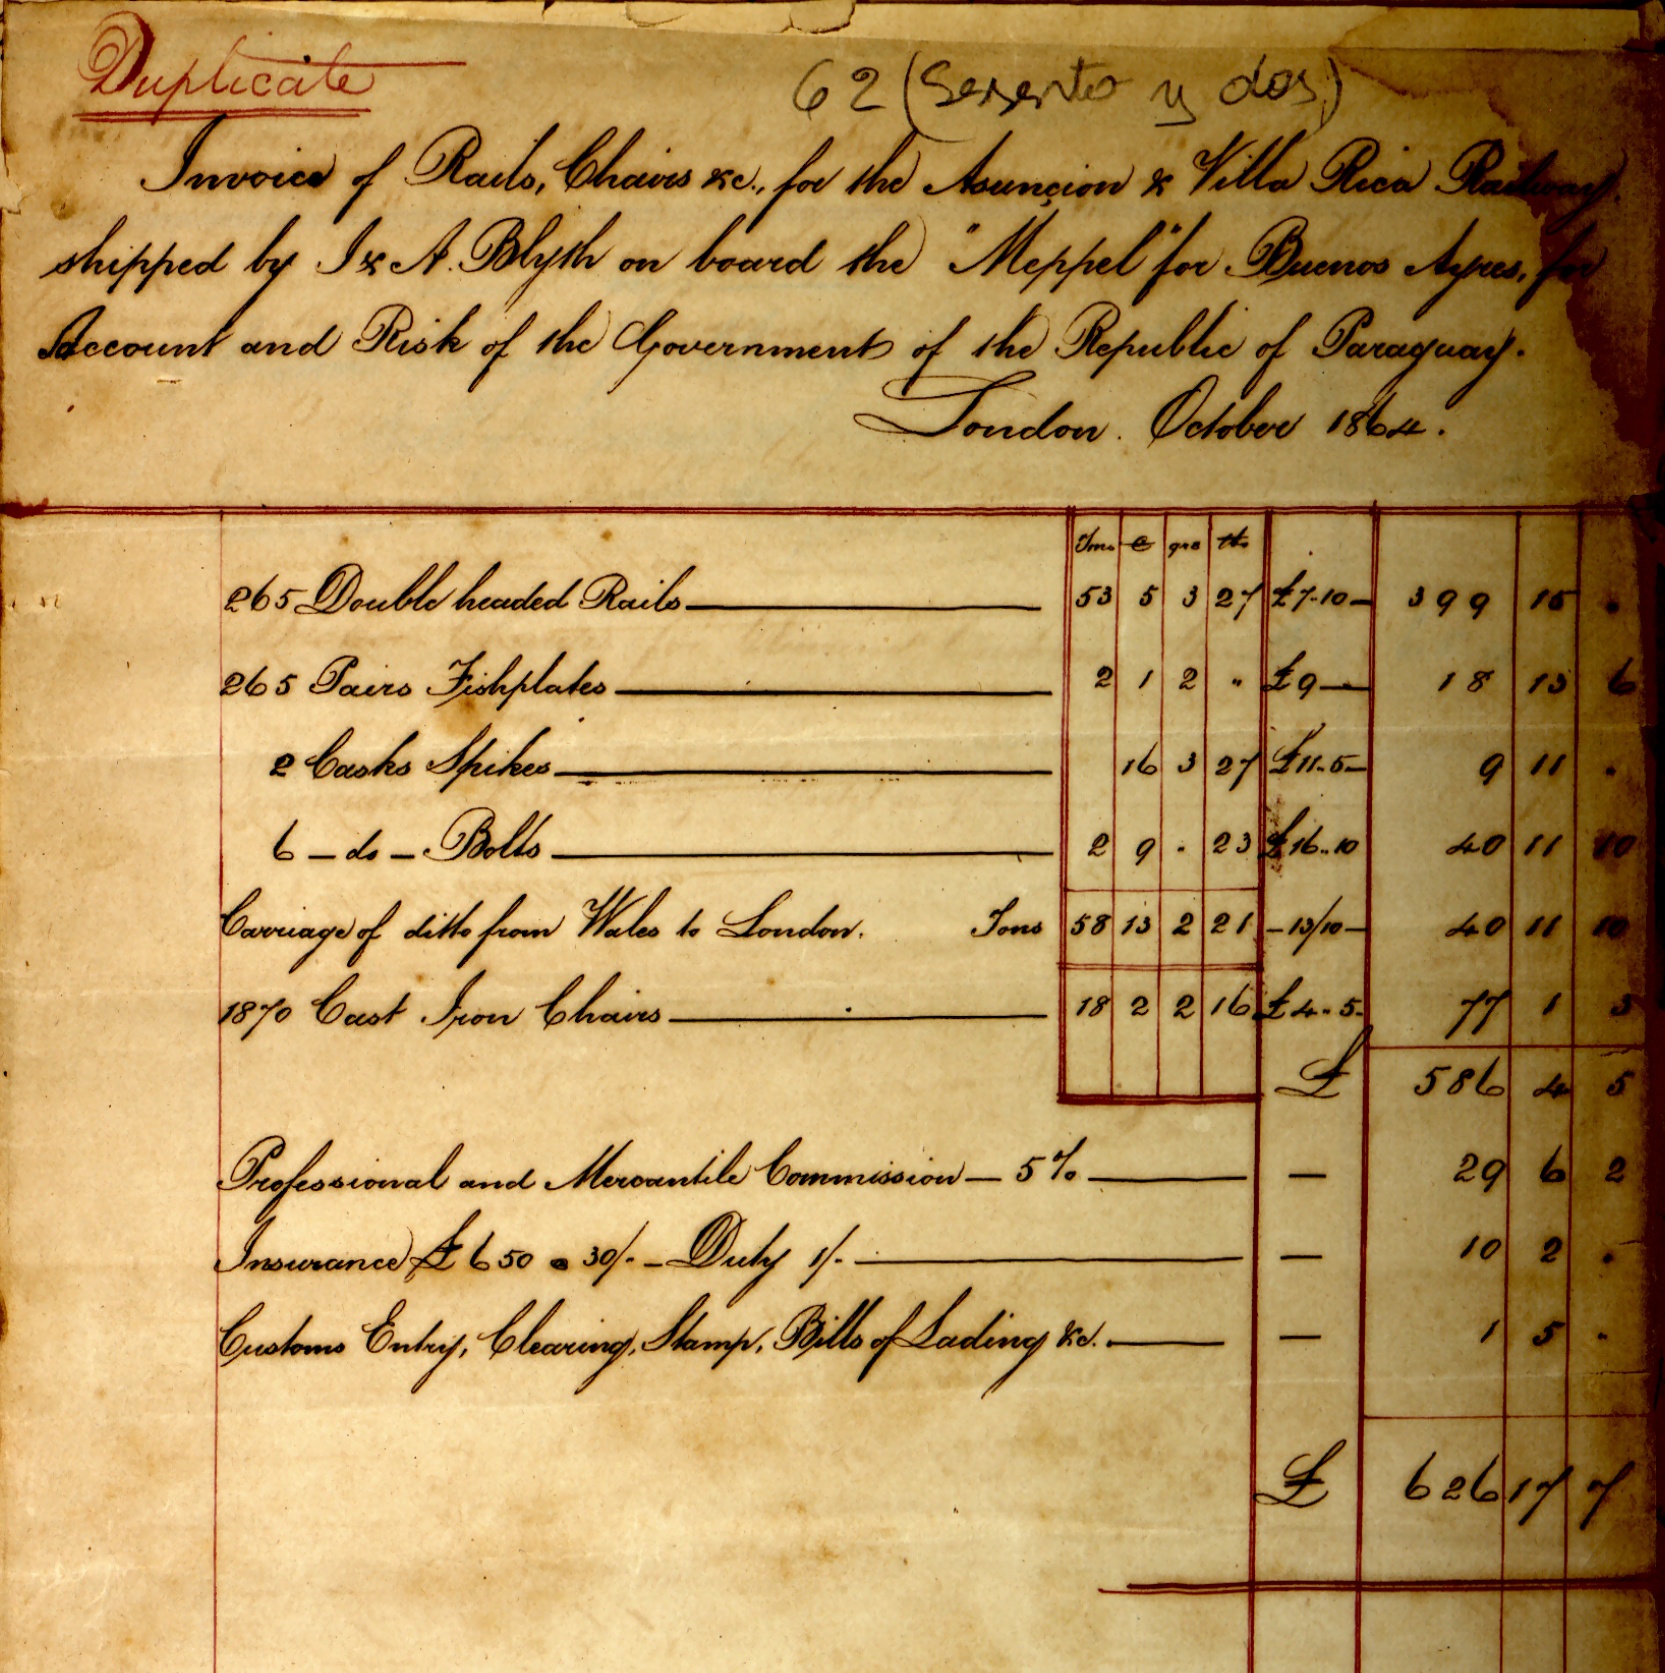 Duplicate
62 (Sesenta y dos)
Invoice of Rails, Chairs &c., for the Asunçion & Villa Rica Railway
shipped by J & A. Blyth on board the "Meppel" for Buenos Ayres, for
Account and Risk of the Government of the Republic of Paraguay.
London. October 1864.
Tons c qrs lbs
265 Double headed Rails 53 5 3 27 £7.10 — 399 15 .
265 Pairs Fishplates 2 1 2 " £9 — 18 13 6
2 Casks Spikes 16 3 27 £11.5 — 9 11 .
6 — do — Bolts 2 9 . 23 £16..10 40 11 10
Carriage of ditto from Wales to London. Tons 58 13 2 21 — 13/10 — 40 11 10
1870 Cast Iron Chairs 18 2 2 16 £4.5. 77 1 3
£ 586 4 5
Professional and Mercantile Commission — 5% — 29 6 2
Insurance £650 @ 30/- — Duty 1/- — 10 2 .
Customs Entry, Clearing, Stamp, Bills of Lading &c. — 1 5 .
£ 626 17 7